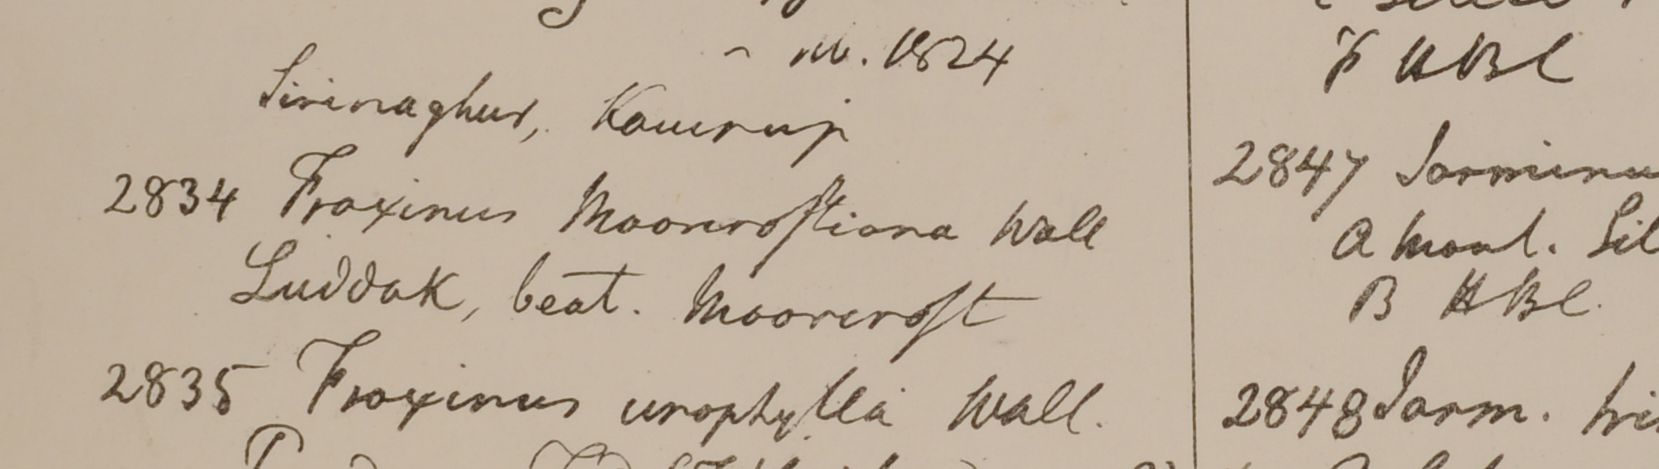 1824
Sirinaghur, Kamrup
2834 Fraxinus Moorcroftiana Wall
Luddak, beat. Moorcroft
2835 Fraxinus urophylla Wall.
HBC
2847 Jasminu
a Mont. Sil
B HBC.
2848 Jasm.